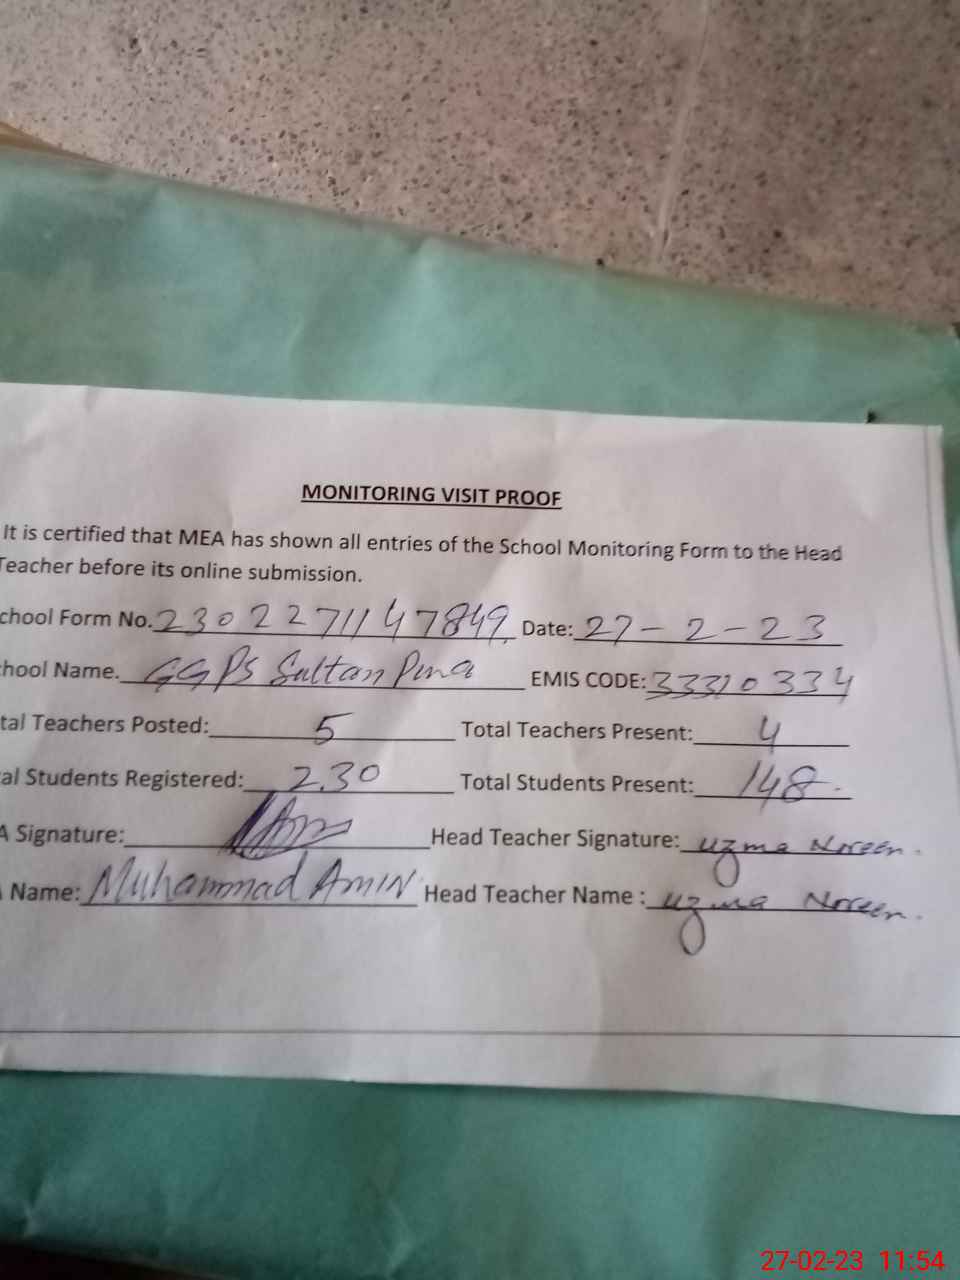 MONITORING VISIT PROOF
It is certified that MEA has shown all entries of the School Monitoring Form to the Head
Teacher before its online submission.
chool Form No. 2302271147849 Date: 27-2-23
hool Name. GGPS Sultan Pura EMIS CODE: 33310334
tal Teachers Posted: 5 Total Teachers Present: 4
al Students Registered: 230 Total Students Present: 148
A Signature: Head Teacher Signature: Uzma Noreen.
Name: Muhammad Amin Head Teacher Name : Uzma Noreen.
27-02-23 11:54